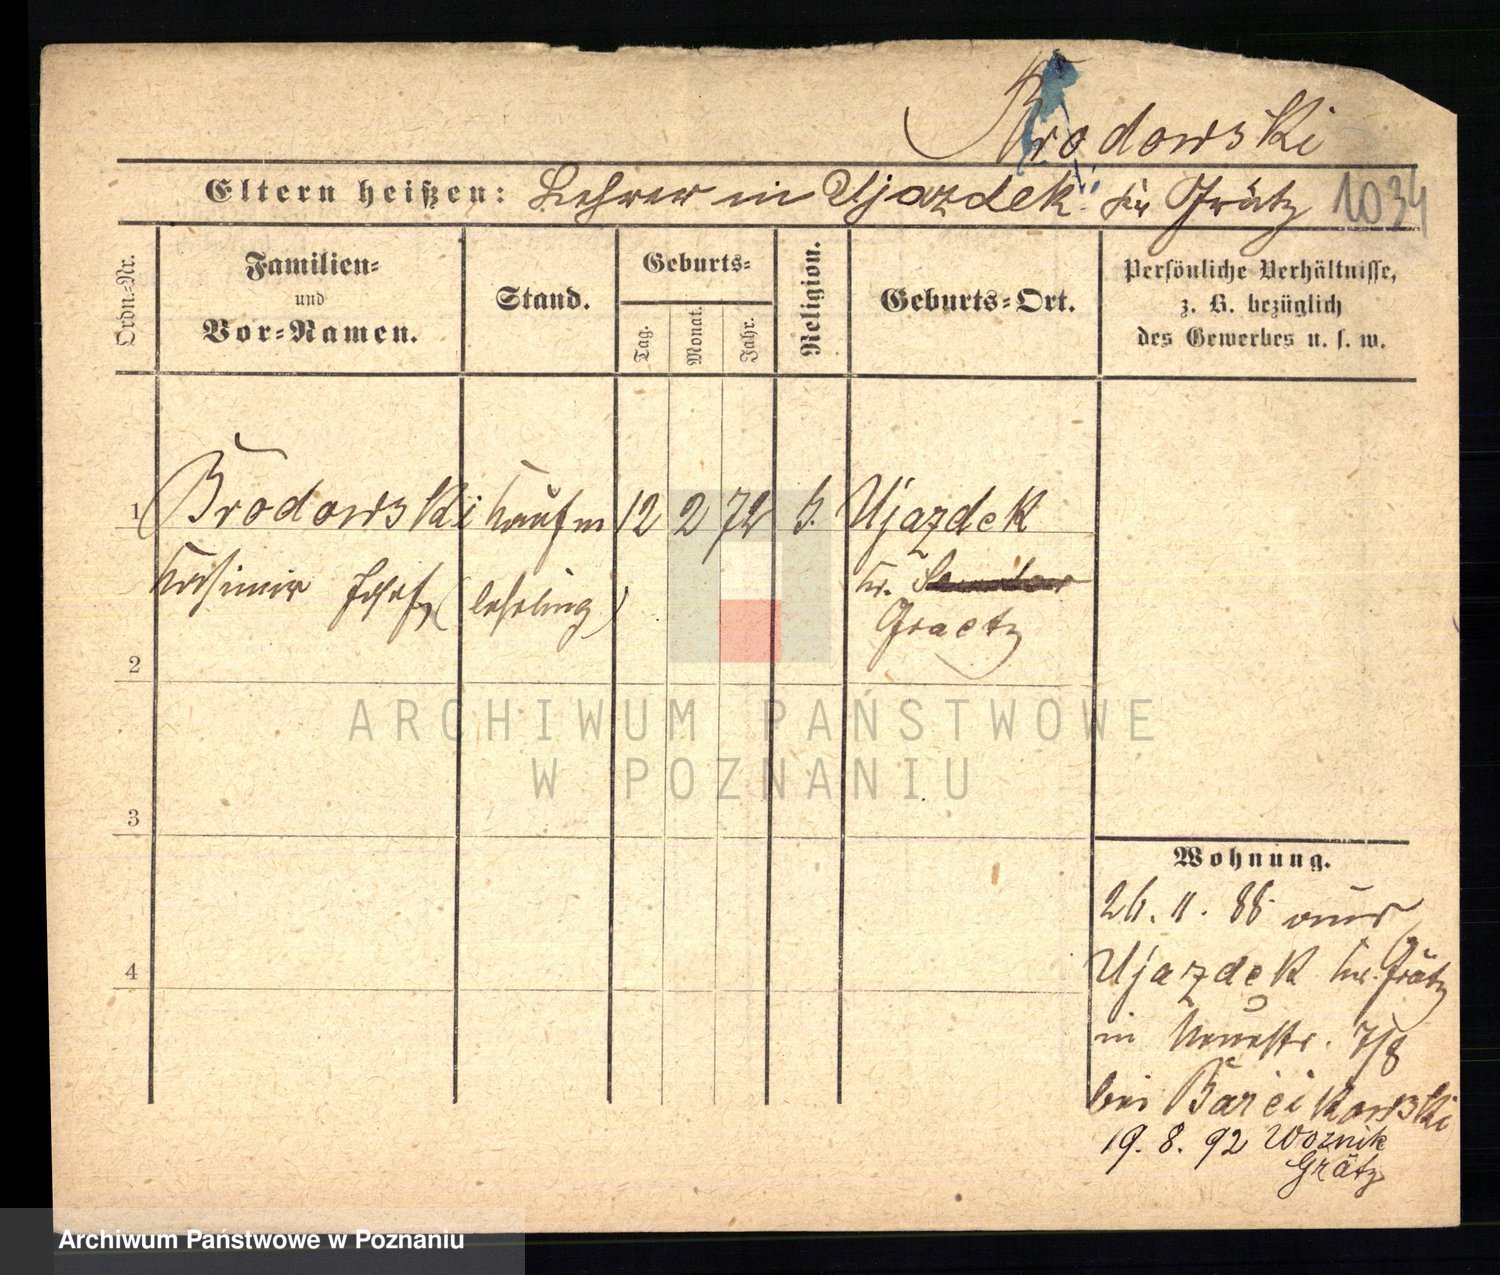 Brodowski
Eltern heißen: Lehrer in Ujazdek Kr Grätz 1034
Ordn.-Nr.
Familien-
und
Vor-Namen.
Stand.
Geburts-
Tag.
Monat.
Jahr.
Religion.
Geburts-Ort.
Persönliche Verhältnisse,
z. B. bezüglich
des Gewerbes u. s. w.
1 Brodowski Kaufm 12 2 72 k. Ujazdek
Kasimir Josef (lehrling) Kr.
Graetz
2
3
4
Wohnung.
26. 11. 88 aus
Ujazdek Kr. Grätz
in Neuestr. 7/8
bei Barcikowski
19. 8. 92 Woznik
Grätz
ARCHIWUM PAŃSTWOWE
W POZNANIU
Archiwum Państwowe w Poznaniu